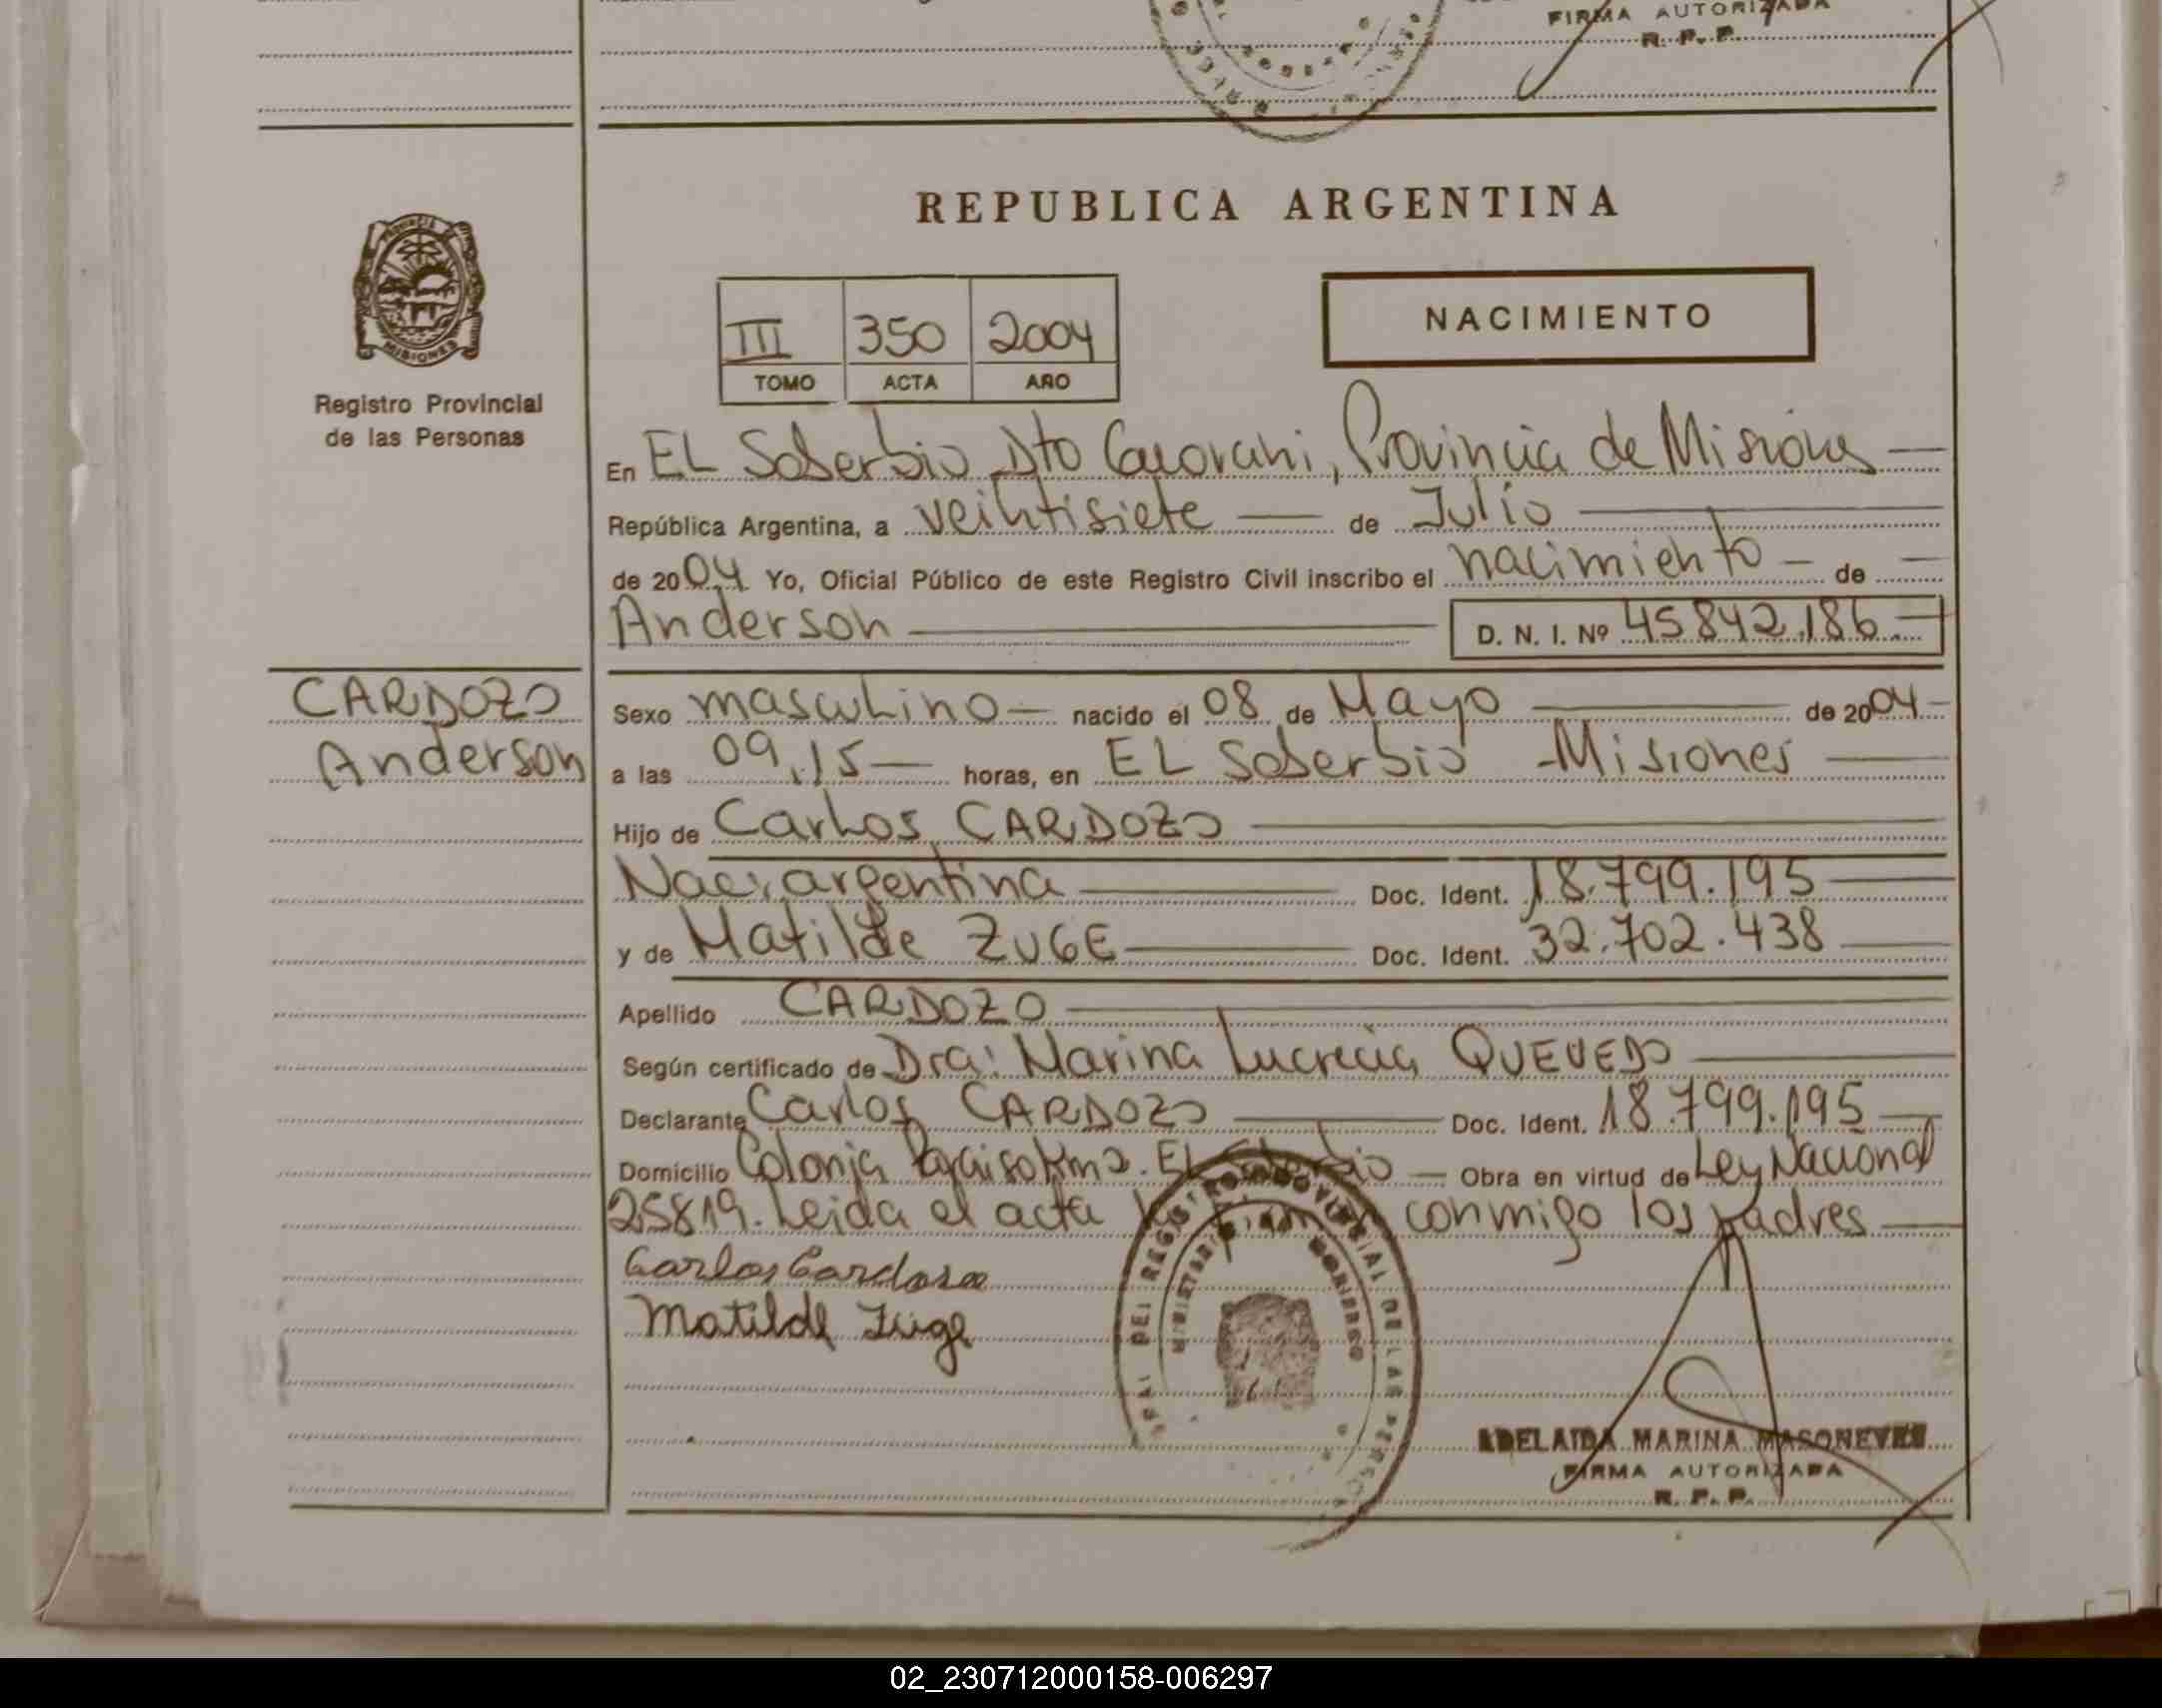 FIRMA AUTORIZADA
R. P. P.
REPUBLICA ARGENTINA
MISIONES
Registro Provincial
de las Personas
III 350 2004
TOMO ACTA AÑO
NACIMIENTO
En EL Soberbio Dto Guarani, Provincia de Misiones
República Argentina, a veintisiete de Julio
de 2004 Yo, Oficial Público de este Registro Civil inscribo el nacimiento de
Anderson D. N. I. Nº 45842.186
CARDOZO
Anderson
Sexo masculino nacido el 08 de Mayo de 2004
a las 09,15 horas, en EL Soberbio -Misiones
Hijo de Carlos CARDOZO
Nac: argentina Doc. Ident. 18.799.195
y de Matilde ZUGE Doc. Ident. 32.702.438
Apellido CARDOZO
Según certificado de Dra: Marina Lucrecia QUEVEDO
Declarante Carlos CARDOZO Doc. Ident. 18.799.195
Domicilio Colonia Paraiso Km2. EL Soberbio Obra en virtud de Ley Nacional
25819. Leida el acta la firman conmigo los padres
Carlos Cardoso
Matilde Zuge
DEL REGISTRO PROVINCIAL DE LAS PERSONAS
MINISTERIO DE GOBIERNO
ADELAIDA MARINA MASONEVES
FIRMA AUTORIZADA
R. P. P.
02_230712000158-006297